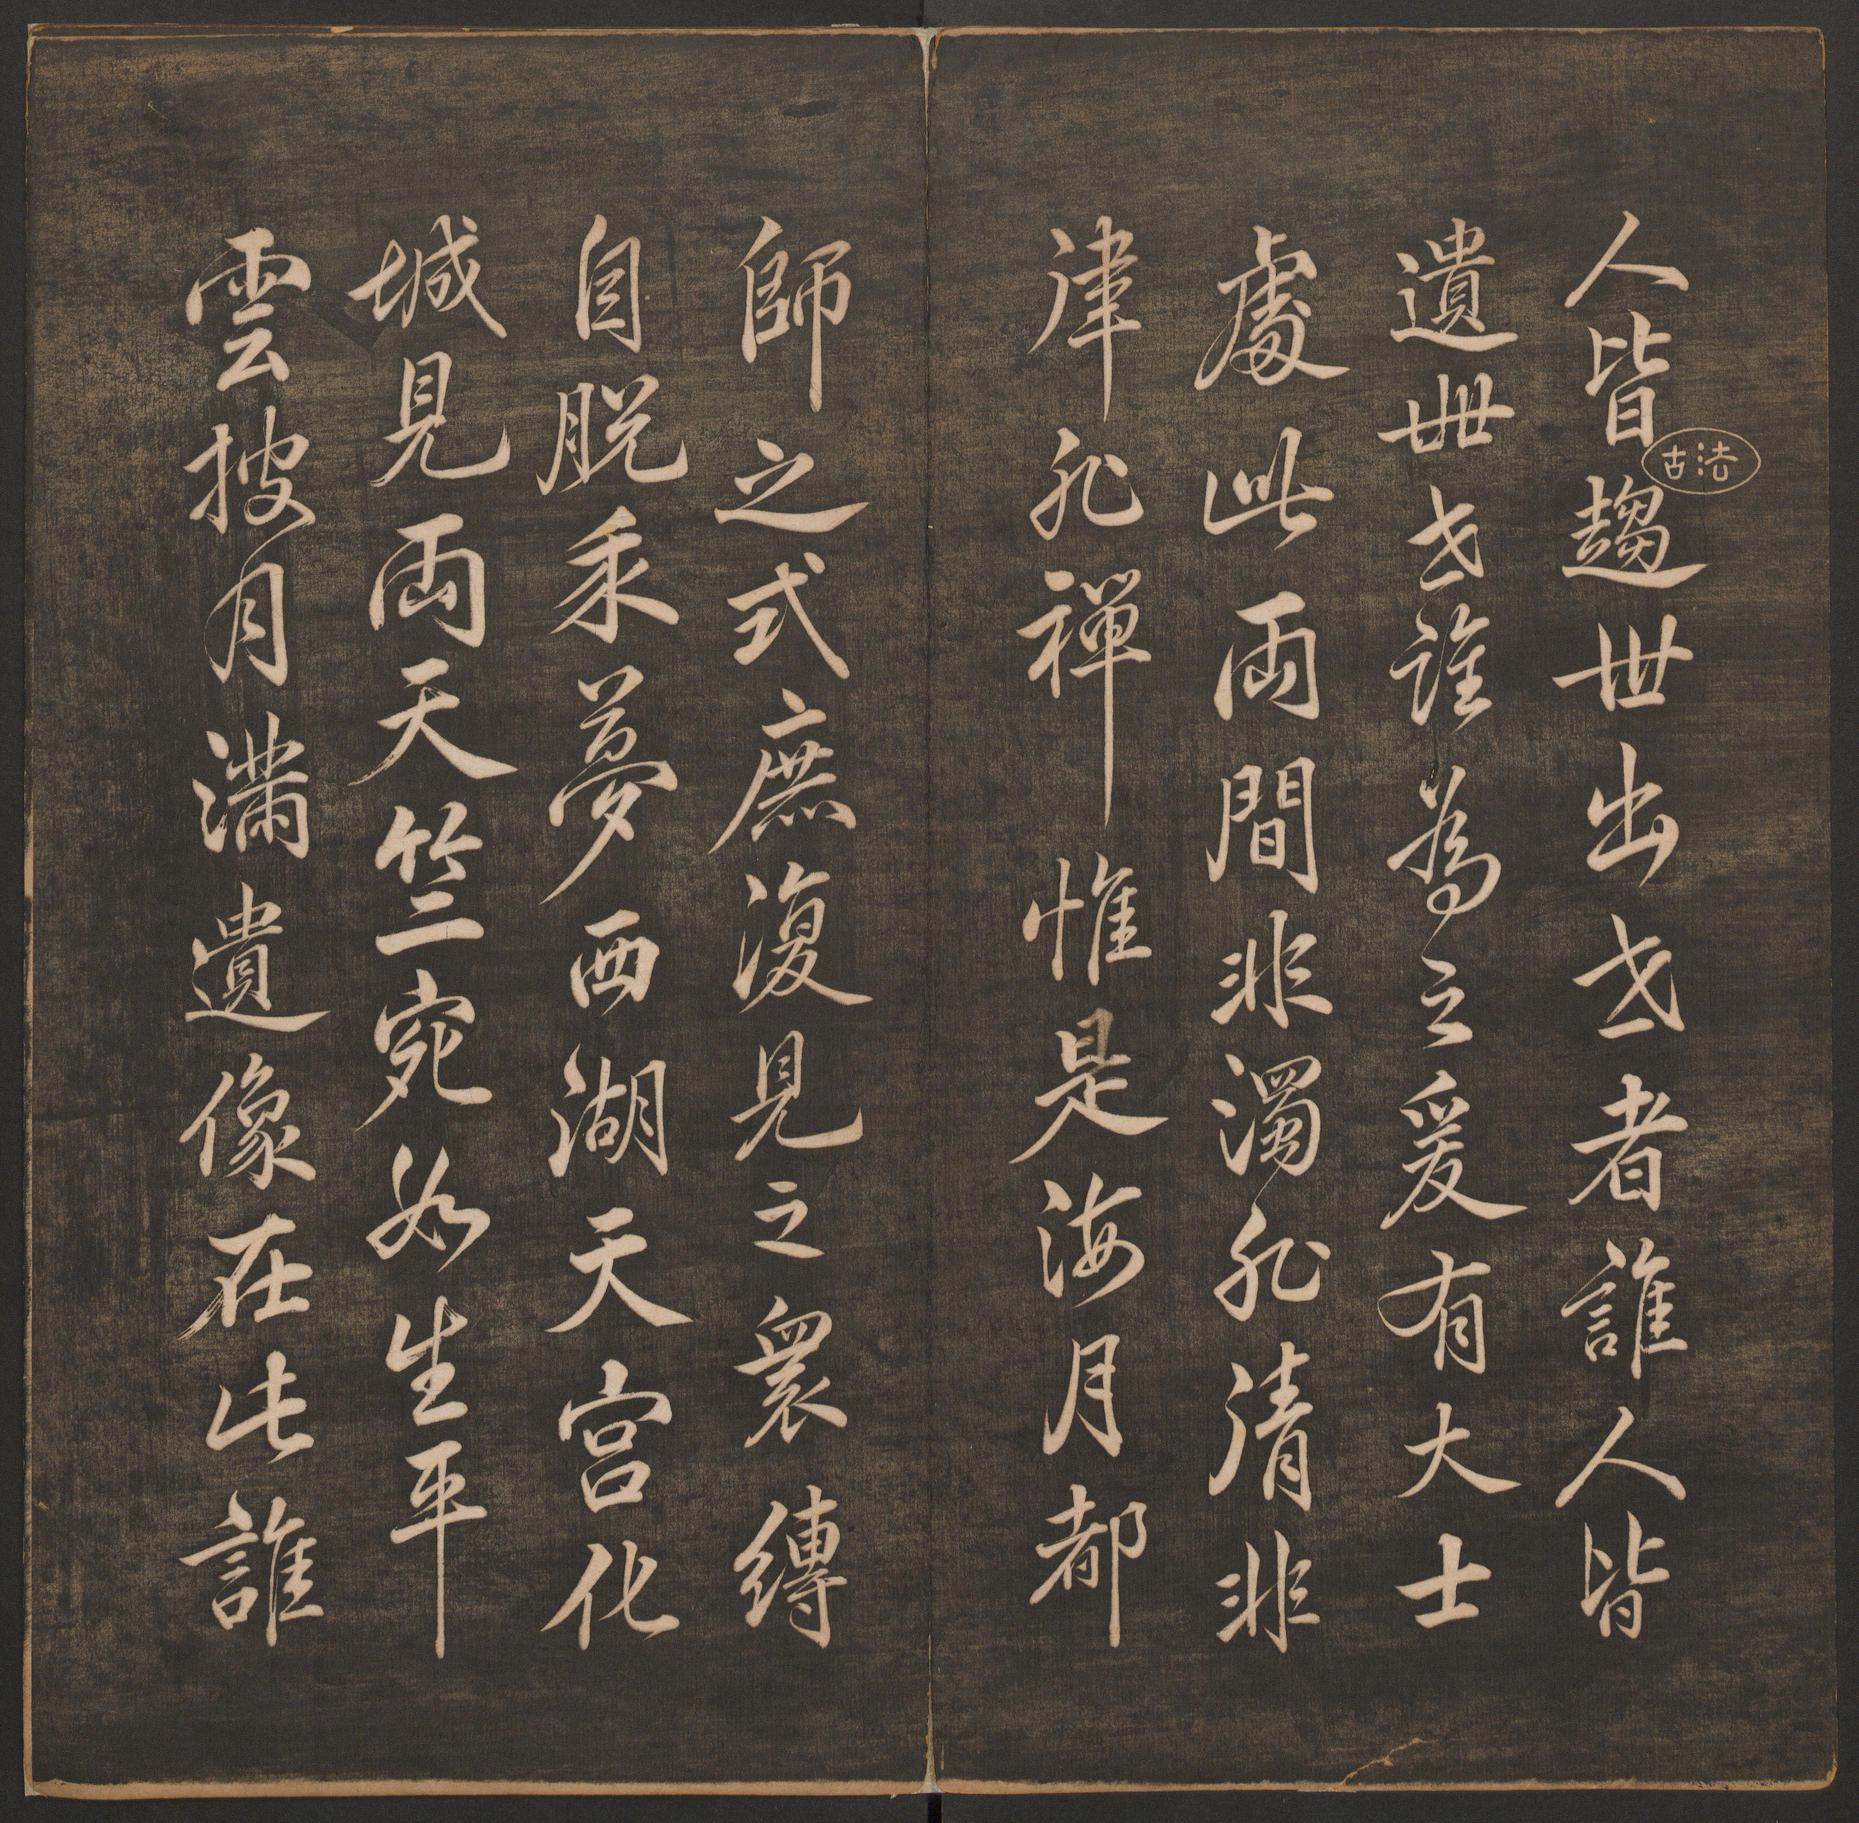 人皆趨世出世者誰人皆
遺世世誰為之爰有大士
處此兩間非濁非清非
律非禪惟是海月都
師之式庶復見之眾縛
自脫乘夢西湖天宮化
城見兩天竺宛如生平
雲披月滿遺像在此誰
法古